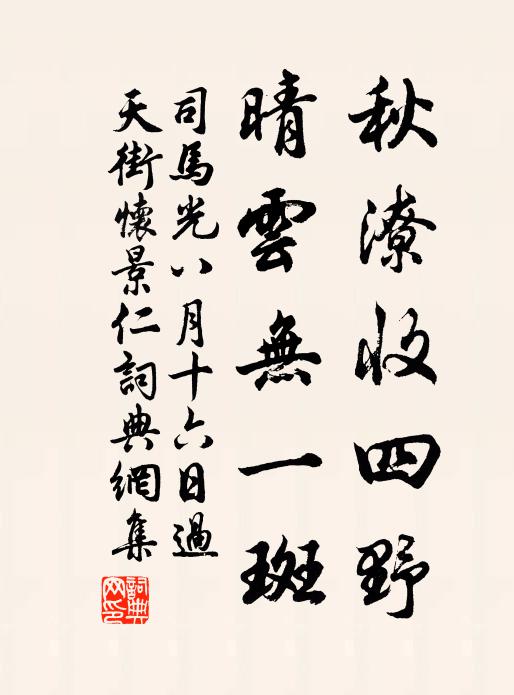 秋潦收四野
晴雲無一斑
司馬光八月十六日過
天街懷景仁詞典網集
詞典網印